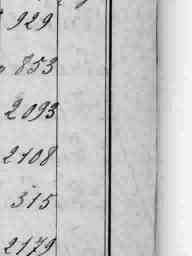 929
853
2093
2108
315
2179